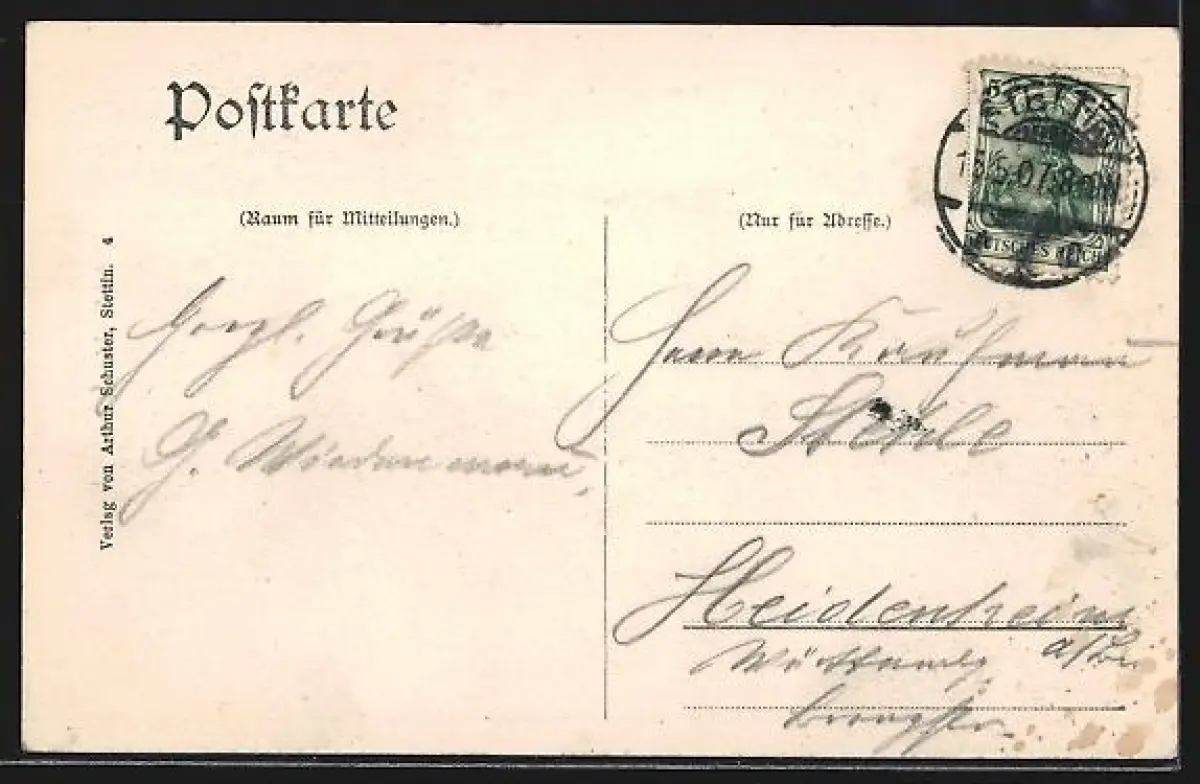 Postkarte
(Raum für Mitteilungen.)
(Nur für Adresse.)
Verlag von Arthur Schuster, Stettin. 4
STETTIN
5.07.8
5
DEUTSCHES REICH
Herzl. Grüße
G. Wiedenmann,
Herrn Kaufmann
Heidenheim
a/Br.
Württemberg